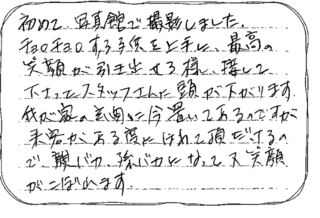 初めて、写真館で撮影しました。
チョロチョロする子供を上手に、最高の
笑顔が引き出せる様に接して
下さったスタッフさんに頭が下がります
我が家の玄関に今置いてあるのですが
来客がある度にほめて頂だけるの
で、親バカ、孫バカになって又笑顔
がこぼれます。